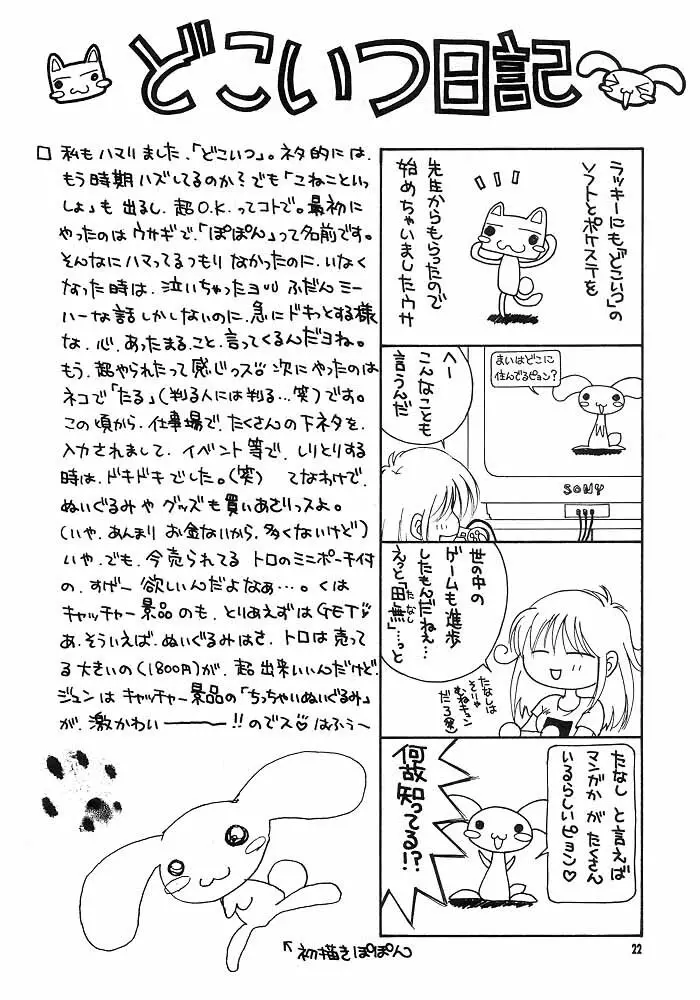 どこいつ日記
私もハマりました、「どこいつ」。ネタ的には、
もう時期ハズしてるのか？でも「こねこといっ
しょ」も出るし、超O.K.ってコトで。最初に
やったのはウサギで、「ぽぽん」って名前です。
そんなにハマってるつもりなかったのに、いなく
なった時は、泣いちゃったヨ ふだんミー
ハーな話しかしないのに、急にドキっとする様
な、心、あったまること、言ってくるんだヨね。
もう、超やられたって感じっス 次にやったのは
ネコで「たる」（判る人には判る…笑）です。
この頃から、仕事場で、たくさんの下ネタを、
入力されまして、イベント等で、しりとりする
時は、ドキドキでした。（笑） てなわけで、
ぬいぐるみやグッズも買いあさりっスよ。
（いや、あんまりお金ないから、多くないけど）
いや、でも、今売られてるトロのミニポーチ付
の、すげー欲しいんだよなあ…。くは
キャッチャー景品のも、とりあえずはGET♡
あ、そういえば、ぬいぐるみはさ、トロは売って
る大きいの（1800円）が、超出来いいんだけど、
ジュンはキャッチャー景品の「ちっちゃいぬいぐるみ」
が、激かわいー!!のでス♡はふぅ〜
ラッキーにも「どこいつ」の
ソフトとポケステを
先生からもらったので
始めちゃいましたウサ
まいはどこに
住んでるピョン？
へー
こんなことも
言うんだ
SONY
世の中の
ゲームも進歩
したもんだねえ…
えっと「田無」…っと
たなし
たなしは
そりゃ
むねキュン
だろ（笑）
たなしと言えば
マンガかがたくさん
いるらしいピョン♡
何故知ってる!?
↖初描きぽぽん
22